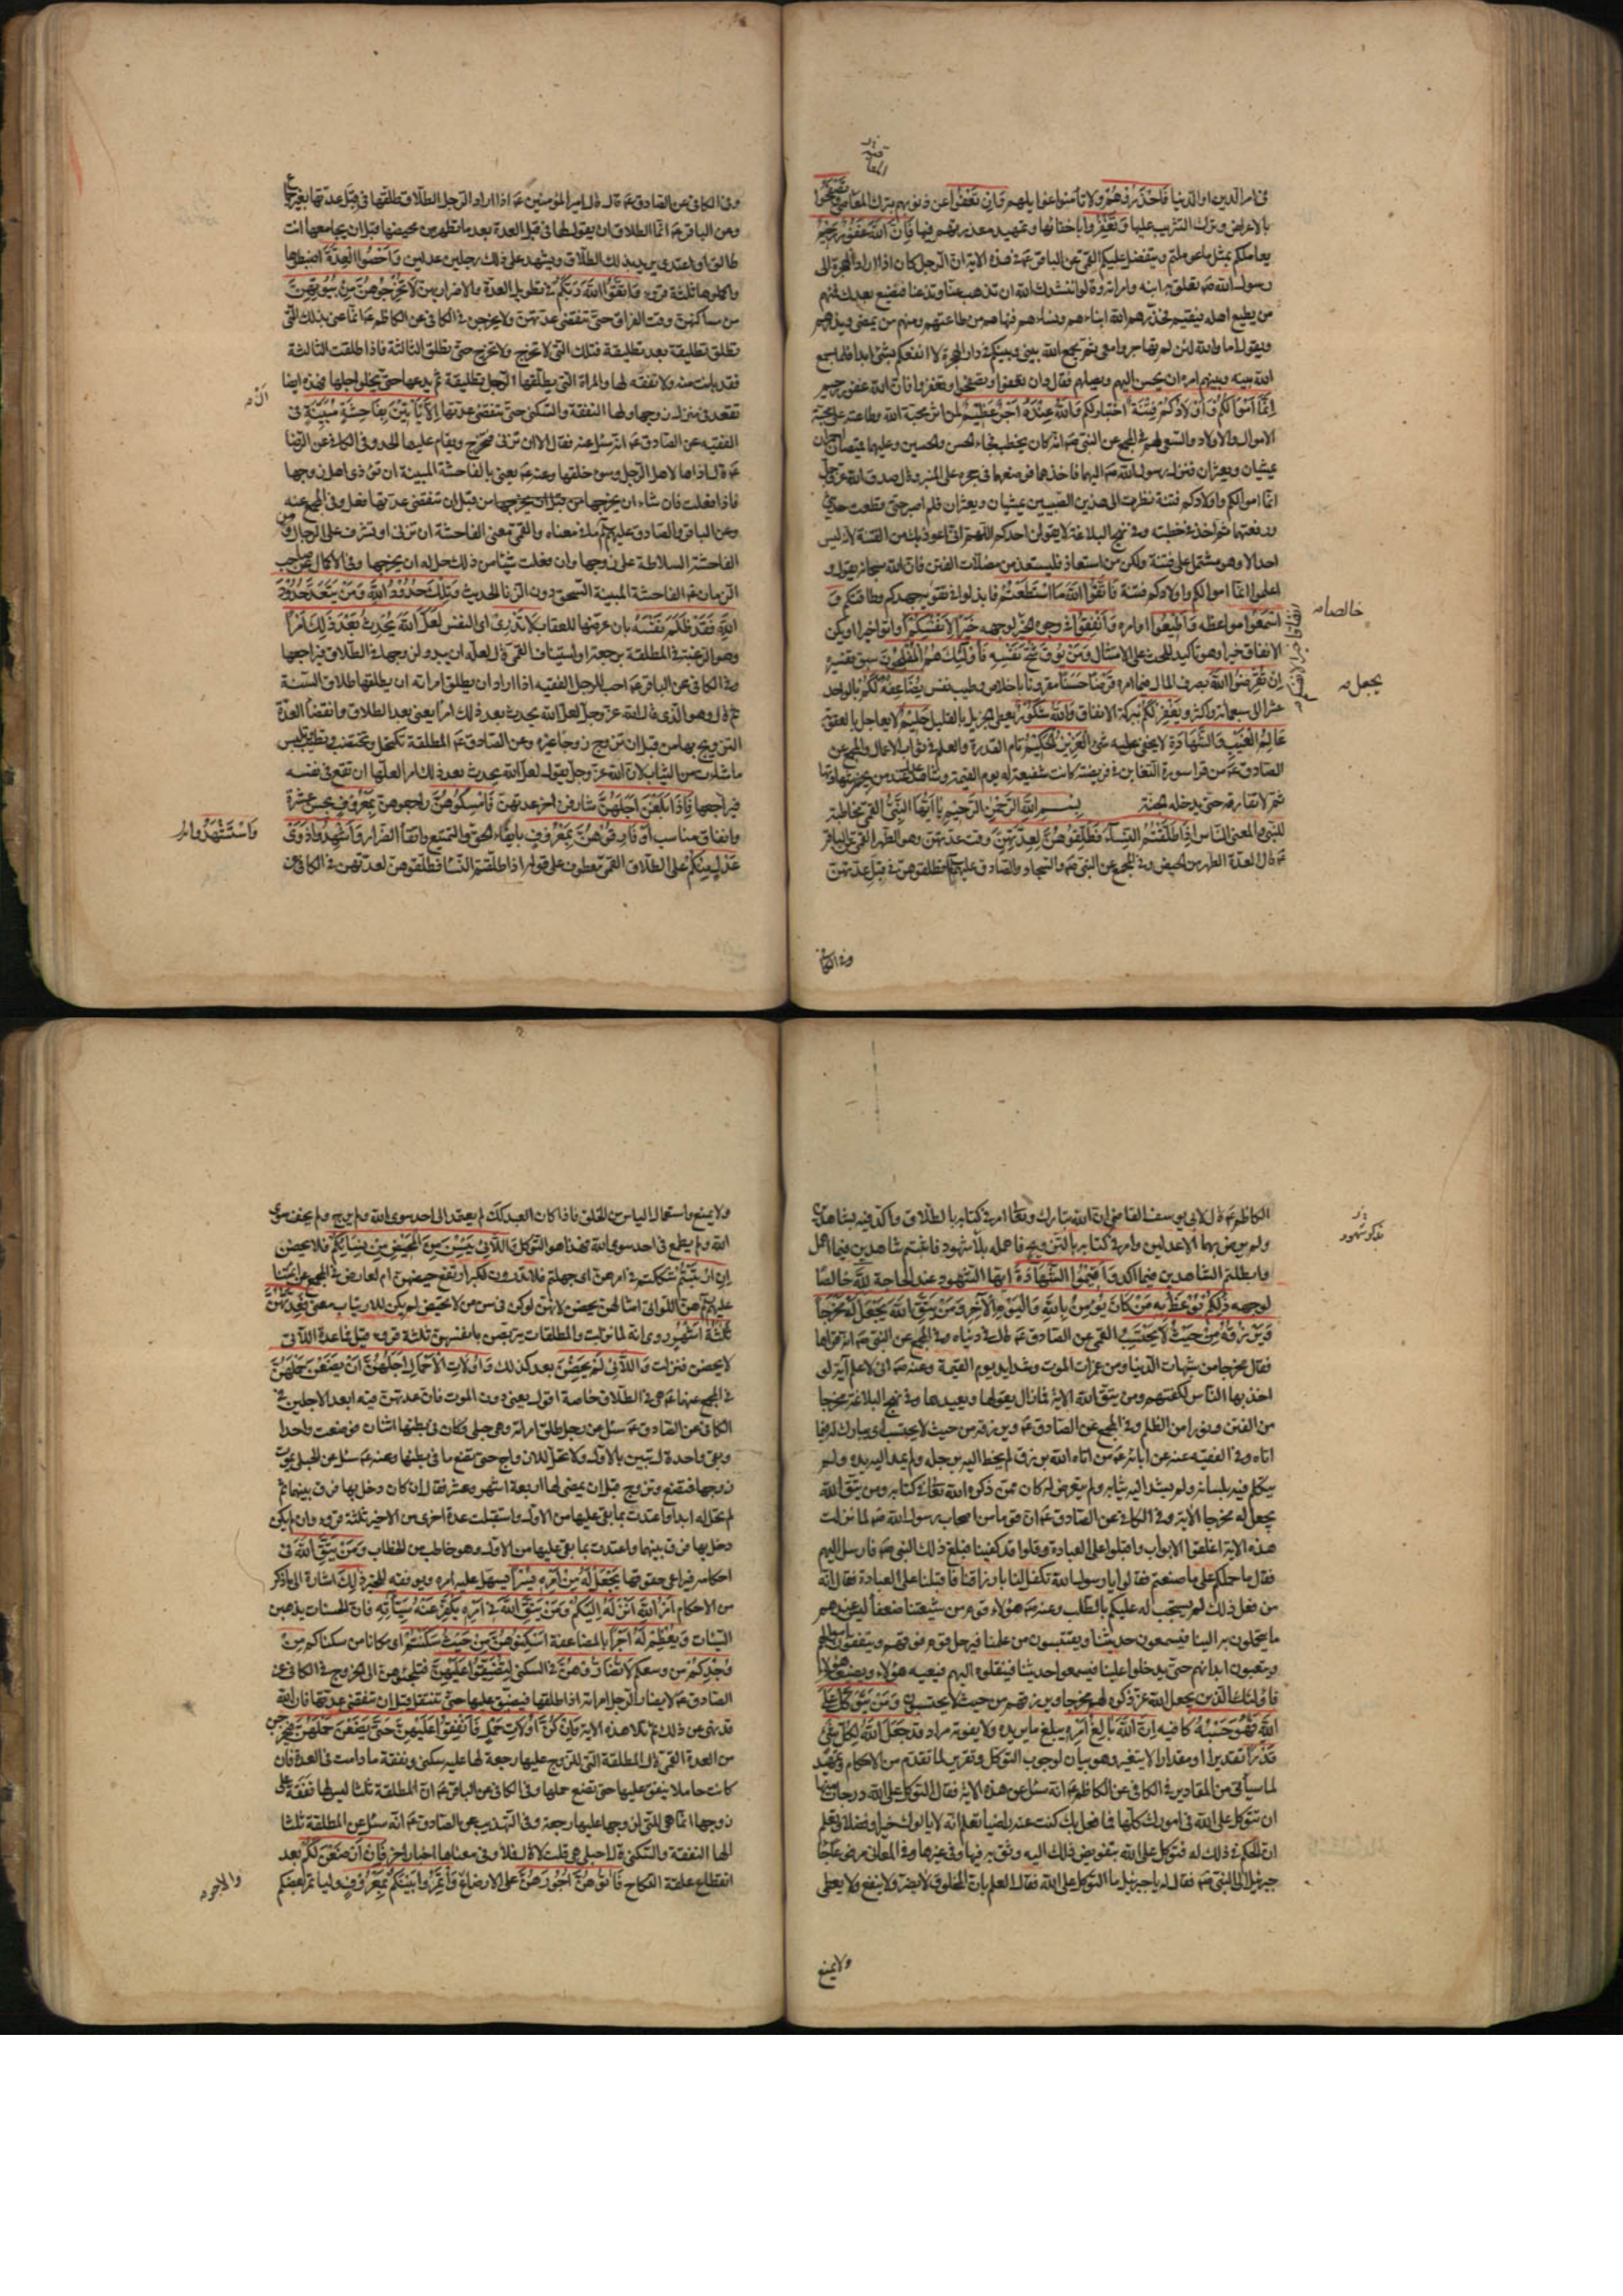 في امر الدين او الدنيا فَاحْذَرُوهُمْ ولا تأمنوا غوايلهم وَاِنْ تَعْفُوا عن ذنوبهم بترك المعاقبة وَتَصْفَحُوا
بالاعراض وترك التثريب عليها وَتَغْفِرُوا باخفائها وتمهيد معذرتهم فيها فَاِنَّ اللهَ غَفُورٌ رَحِيمٌ
يعاملكم بمثل ما عملتم ويتفضل عليكم القمي عن الباقر عم في هذه الاية ان الرجل كان اذا اراد الهجرة الى
رسول الله صم تعلق به ابنه وامراته وقالوا ننشدك الله ان تذهب عنا وتدعنا فنضيع بعدك فمنهم
من يطيع اهله فيقيم فحذرهم الله ابناءهم ونساءهم ونهاهم من طاعتهم ومنهم من يمضي ويذرهم
ويقول اما والله لئن لم تهاجروا معي ثم يجمع الله بيني وبينكم في دار الهجرة لا انفعكم بشئ ابدا فلما جمع
الله بينه وبينهم امره ان يحسن اليهم ويصلهم فقال وان تعفوا وتصفحوا وتغفروا فان الله غفور رحيم
اِنَّمَا اَمْوَالُكُمْ وَاَوْلَادُكُمْ فِتْنَةٌ اختبار لكم وَاللهُ عِنْدَهُ اَجْرٌ عَظِيمٌ لمن اثر محبة الله وطاعته على محبة
الاموال والاولاد والسعي لهم في المجمع عن النبي صم انه كان يخطب فجاء الحسن والحسين وعليهما قميصان احمران
يمشيان ويعثران فنزل رسول الله صم اليهما فاخذهما فوضعهما في حجره على المنبر وقال صدق الله عز وجل
انما اموالكم واولادكم فتنة نظرت الى هذين الصبيين يمشيان ويعثران فلم اصبر حتى قطعت حديثي
ورفعتهما ثم اخذ في خطبته وفي نهج البلاغة لا يقولن احدكم اللهم اني اعوذ بك من الفتنة لانه ليس
احد الا وهو مشتمل على فتنة ولكن من استعاذ فليستعذ من مضلات الفتن فان الله سبحانه يقول و
اعلموا انما اموالكم واولادكم فتنة فَاتَّقُوا اللهَ مَا اسْتَطَعْتُمْ فابذلوا في تقويه جهدكم وطاقتكم وَ
اسْمَعُوا مواعظه وَاَطِيعُوا اوامره وَاَنْفِقُوا في وجوه الخير لوجهه خَيْرًا لِاَنْفُسِكُمْ واتوا خيرا او يكن
الانفاق خيرا وهو تأكيد للحث على الامتثال وَمَنْ يُوقَ شُحَّ نَفْسِهِ فَاُولٰئِكَ هُمُ الْمُفْلِحُونَ سبق تفسيره
اِنْ تُقْرِضُوا اللهَ بصرف المال فيما امره قَرْضًا حَسَنًا مقرونا باخلاص وطيب نفس يُضَاعِفْهُ لَكُمْ بالواحد
عشرا الى سبعمائة واكثر وَيَغْفِرْ لَكُمْ ببركة الانفاق وَاللهُ شَكُورٌ يعطي الجزيل بالقليل حَلِيمٌ لا يعاجل بالعقوبة
عَالِمُ الْغَيْبِ وَالشَّهَادَةِ لا يخفى عليه شئ الْعَزِيزُ الْحَكِيمُ تام القدرة والعلم في ثواب الاعمال والمجمع عن
الصادق عم من قرا سورة التغابن في فريضته كانت شفيعة له يوم القيمة وشاهد عدل عند من يجيز شهادتها
ثم لا تفارقه حتى يدخله الجنة بِسْمِ اللهِ الرَّحْمٰنِ الرَّحِيمِ يَا اَيُّهَا النَّبِيُّ القمي مخاطبة
للنبي والمعنى للناس اِذَا طَلَّقْتُمُ النِّسَاءَ فَطَلِّقُوهُنَّ لِعِدَّتِهِنَّ وقت عدتهن وهو الطهر القمي عن الباقر
عم قال العدة الطهر من الحيض وفي المجمع عن النبي صم والسجاد والصادق عليهم فطلقوهن في قبل عدتهن
خالصا صه
يجعل مه
وفي الكافي
وفي الكافي عن الصادق عم قال قال امير المؤمنين عم اذا اراد الرجل الطلاق طلقها في قبل عدتها بغير جماع
وعن الباقر عم انما الطلاق ان يقول لها في قبل العدة بعد ما تطهر من محيضها قبل ان يجامعها انت
طالق او اعتدي يريد بذلك الطلاق ويشهد على ذلك رجلين عدلين وَاَحْصُوا الْعِدَّةَ اضبطوها
واكملوها ثلثة قروء وَاتَّقُوا اللهَ رَبَّكُمْ في تطويل العدة والاضرار بهن لَا تُخْرِجُوهُنَّ مِنْ بُيُوتِهِنَّ
من مساكنهن وقت الفراق حتى تنقضي عدتهن ولا يخرجن في الكافي عن الكاظم عم انما عنى بذلك التي
تطلق تطليقة بعد تطليقة فتلك التي لا تخرج ولا تخرج حتى تطلق الثالثة فاذا طلقت الثالثة
فقد بانت منه ولا نفقة لها والمراة التي يطلقها الرجل تطليقة ثم يدعها حتى يخلو اجلها فهذه ايضا
تقعد في منزل زوجها ولها النفقة والسكنى حتى تنقضي عدتها اِلَّا اَنْ يَاْتِينَ بِفَاحِشَةٍ مُبَيِّنَةٍ في
الفقيه عن الصادق عم انه سئل عنه فقال الا ان تزني فتخرج ويقام عليها الحد وفي الكافي عن الرضا
عم قال اذاها لاهل الرجل وسوء خلقها وعنه عم يعني بالفاحشة المبينة ان تؤذي اهل زوجها
فاذا فعلت فان شاء ان يخرجها من قبل ان يخرجها من قبل ان تنقضي عدتها فعل وفي المجمع عنه
وعن الباقر والصادق عليهم ما في معناه والقمي معنى الفاحشة ان تزني او تشرف على الرجال ومن
الفاحشة السلاطة على زوجها وان فعلت شيئا من ذلك حل له ان يخرجها وفي الاكمال عن صاحب
الزمان عم الفاحشة المبينة السحق دون الزنا الحديث وَتِلْكَ حُدُودُ اللهِ وَمَنْ يَتَعَدَّ حُدُودَ
اللهِ فَقَدْ ظَلَمَ نَفْسَهُ بان عرضها للعقاب لَا تَدْرِي اي النفس لَعَلَّ اللهَ يُحْدِثُ بَعْدَ ذٰلِكَ اَمْرًا
وهو الرغبة في المطلقة برجعة او استيناف القمي قال لعله ان يبدو لزوجها في الطلاق فيراجعها
وفي الكافي عن الباقر عم احب للرجل الفقيه اذا اراد ان يطلق امراته ان يطلقها طلاق السنة
ثم قال وهو الذي قال الله عز وجل لعل الله يحدث بعد ذلك امرا يعني بعد الطلاق وانقضاء العدة
التزويج بها من قبل ان تزوج زوجا غيره وعن الصادق عم المطلقة تكتحل وتختضب وتطيب وتلبس
ما شاءت من الثياب لان الله عز وجل يقول لعل الله يحدث بعد ذلك امرا لعلها ان تقع في نفسه
فيراجعها فَاِذَا بَلَغْنَ اَجَلَهُنَّ شارفن اخر عدتهن فَاَمْسِكُوهُنَّ راجعوهن بِمَعْرُوفٍ بحسن عشرة
وانفاق مناسب اَوْ فَارِقُوهُنَّ بِمَعْرُوفٍ بايفاء الحق والتمتيع واتقاء الضرار وَاَشْهِدُوا ذَوَيْ
عَدْلٍ مِنْكُمْ على الطلاق القمي معطوف على قوله اذا طلقتم النساء فطلقوهن لعدتهن في الكافي عن
الكاظم عم قال لابي يوسف القاضي ان الله تبارك وتعالى امر في كتابه بالطلاق واكد فيه بشاهدين
ولم يرض بهما الا عدلين وامر في كتابه بالتزويج فاهمله بلا شهود فاثبتم شاهدين فيما اهمل
وابطلتم الشاهدين فيما اكد وَاَقِيمُوا الشَّهَادَةَ ايها الشهود عند الحاجة لِلّٰهِ خالصا
لوجهه ذٰلِكُمْ يُوعَظُ بِهِ مَنْ كَانَ يُؤْمِنُ بِاللهِ وَالْيَوْمِ الْاٰخِرِ وَمَنْ يَتَّقِ اللهَ يَجْعَلْ لَهُ مَخْرَجًا
وَيَرْزُقْهُ مِنْ حَيْثُ لَا يَحْتَسِبُ القمي عن الصادق عم قال في دنياه وفي المجمع عن النبي صم انه قراها
فقال مخرجا من شبهات الدنيا ومن غمرات الموت وشدايد يوم القيمة وعنه صم اني لاعلم آية لو
اخذ بها الناس لكفتهم ومن يتق الله الاية فما زال يقولها ويعيدها وفي نهج البلاغة مخرجا
من الفتن ونورا من الظلم وفي المجمع عن الصادق عم ويرزقه من حيث لا يحتسب اي يبارك له فيما
اتاه وفي الفقيه عنه عن ابائه عم من اتاه الله برزق لم يخط اليه برجله ولم يمد اليه يده ولم
يتكلم فيه بلسانه ولم يشد اليه ثيابه ولم يتعرض له كان ممن ذكره الله تعالى في كتابه ومن يتق الله
يجعل له مخرجا الاية وفي الكافي عن الصادق عم ان قوما من اصحاب رسول الله صم لما نزلت
هذه الاية اغلقوا الابواب واقبلوا على العبادة وقالوا قد كفينا فبلغ ذلك النبي صم فارسل اليهم
فقال ما حملكم على ما صنعتم فقالوا يا رسول الله تكفل لنا بارزاقنا فاقبلنا على العبادة فقال انه
من فعل ذلك لم يستجب له عليكم بالطلب وعنه عم هؤلاء قوم من شيعتنا ضعفاء ليس عندهم
ما يتحملون به الينا فيسمعون حديثنا ويقتبسون من علمنا فيرحل قوم فوقهم وينفقون اموالهم
ويتعبون ابدانهم حتى يدخلوا علينا فيسمعوا حديثنا فينقلوه اليهم فيعيه هؤلاء ويضيعه هؤلاء
فاولئك الذين يجعل الله عز ذكره لهم مخرجا ويرزقهم من حيث لا يحتسبون وَمَنْ يَتَوَكَّلْ عَلَى
اللهِ فَهُوَ حَسْبُهُ كافيه اِنَّ اللهَ بَالِغُ اَمْرِهِ يبلغ ما يريده ولا يفوته مراد قَدْ جَعَلَ اللهُ لِكُلِّ شَيْءٍ
قَدْرًا تقديرا او مقدارا لا يتغير وهو بيان لوجوب التوكل وتقرير لما تقدم من الاحكام وتمهيد
لما سيأتي من المقادير في الكافي عن الكاظم عم انه سئل عن هذه الاية فقال التوكل على الله درجات منها
ان تتوكل على الله في امورك كلها فما فعل بك كنت عنه راضيا تعلم انه لا يالوك خيرا وفضلا وتعلم
ان الحكم في ذلك له فتوكل على الله بتفويض ذلك اليه وثق به فيها وفي غيرها وفي المعاني مرفوعا جاء
جبرئيل الى النبي صم فقال له يا جبرئيل ما التوكل على الله فقال العلم بان المخلوق لا يضر ولا ينفع ولا يعطي
ولا يمنع
ولا يمنع واستعمال الياس من الخلق فاذا كان العبد كذلك لم يعتمد الى احد سوى الله ولم يرج ولم يخف سوى
الله ولم يطمع في احد سوى الله فهذا هو التوكل وَاللَّائِي يَئِسْنَ مِنَ الْمَحِيضِ مِنْ نِسَائِكُمْ فلا يحضن
اِنِ ارْتَبْتُمْ شككتم في امرهن اي جهلتم فلا تدرون لكبر ارتفع حيضهن ام لعارض في المجمع عن ائمتنا
عليهم هن اللواتي امثالهن يحضن لانهن لو كن في سن من لا تحيض لم يكن للارتياب معنى فَعِدَّتُهُنَّ
ثَلٰثَةُ اَشْهُرٍ روي انه لما نزلت والمطلقات يتربصن بانفسهن ثلثة قروء قيل فما عدة اللائي
لا يحضن فنزلت وَاللَّائِي لَمْ يَحِضْنَ بعد كذلك وَاُولَاتُ الْاَحْمَالِ اَجَلُهُنَّ اَنْ يَضَعْنَ حَمْلَهُنَّ
في المجمع عنهما عم هي في الطلاق خاصة اقول يعني دون الموت فان عدتهن فيه ابعد الاجلين في
الكافي عن الصادق عم سئل عن رجل طلق امراته وهي حبلى وكان في بطنها اثنان فوضعت واحدا
وبقي واحد قال تبين بالاول ولا تحل للازواج حتى تضع ما في بطنها وعنه عم سئل عن الحبلى يموت
زوجها فتضع وتزوج قبل ان يمضي لها اربعة اشهر وعشر فقال ان كان دخل بها فرق بينهما ثم
لم تحل له ابدا واعتدت بما بقي عليها من الاول واستقبلت عدة اخرى من الاخير ثلثة قروء وان لم يكن
دخل بها فرق بينهما واعتدت بما بقي عليها من الاول وهو خاطب من الخطاب وَمَنْ يَتَّقِ اللهَ في
احكامه فيراعي حقوقها يَجْعَلْ لَهُ مِنْ اَمْرِهِ يُسْرًا يسهل عليه امره ويوفقه للخير ذٰلِكَ اشارة الى ما ذكر
من الاحكام اَمْرُ اللهِ اَنْزَلَهُ اِلَيْكُمْ وَمَنْ يَتَّقِ اللهَ في امره يُكَفِّرْ عَنْهُ سَيِّئَاتِهِ فان الحسنات يذهبن
السيئات وَيُعْظِمْ لَهُ اَجْرًا بالمضاعفة اَسْكِنُوهُنَّ مِنْ حَيْثُ سَكَنْتُمْ اي مكانا من سكناكم مِنْ
وُجْدِكُمْ من وسعكم وَلَا تُضَارُّوهُنَّ في السكنى لِتُضَيِّقُوا عَلَيْهِنَّ فتلجئوهن الى الخروج في الكافي عن
الصادق عم لا يضار الرجل امراته اذا طلقها فيضيق عليها حتى تنتقل قبل ان تنقضي عدتها فان الله
قد نهى عن ذلك ثم تلا هذه الاية وَاِنْ كُنَّ اُولَاتِ حَمْلٍ فَاَنْفِقُوا عَلَيْهِنَّ حَتَّى يَضَعْنَ حَمْلَهُنَّ فيخرجن
من العدة القمي قال المطلقة التي للزوج عليها رجعة لها عليه سكنى ونفقة ما دامت في العدة فان
كانت حاملا ينفق عليها حتى تضع حملها وفي الكافي عن الباقر عم ان المطلقة ثلثا ليس لها نفقة على
زوجها انما هي للتي لزوجها عليها رجعة وفي التهذيب عن الصادق عم انه سئل عن المطلقة ثلثا
الها النفقة والسكنى قال احبلى هي قلت لا قال فلا وفي معناها اخبار اخر فَاِنْ اَرْضَعْنَ لَكُمْ بعد
انقطاع علقة النكاح فَاٰتُوهُنَّ اُجُورَهُنَّ على الارضاع وَأْتَمِرُوا بَيْنَكُمْ بِمَعْرُوفٍ وليأمر بعضكم